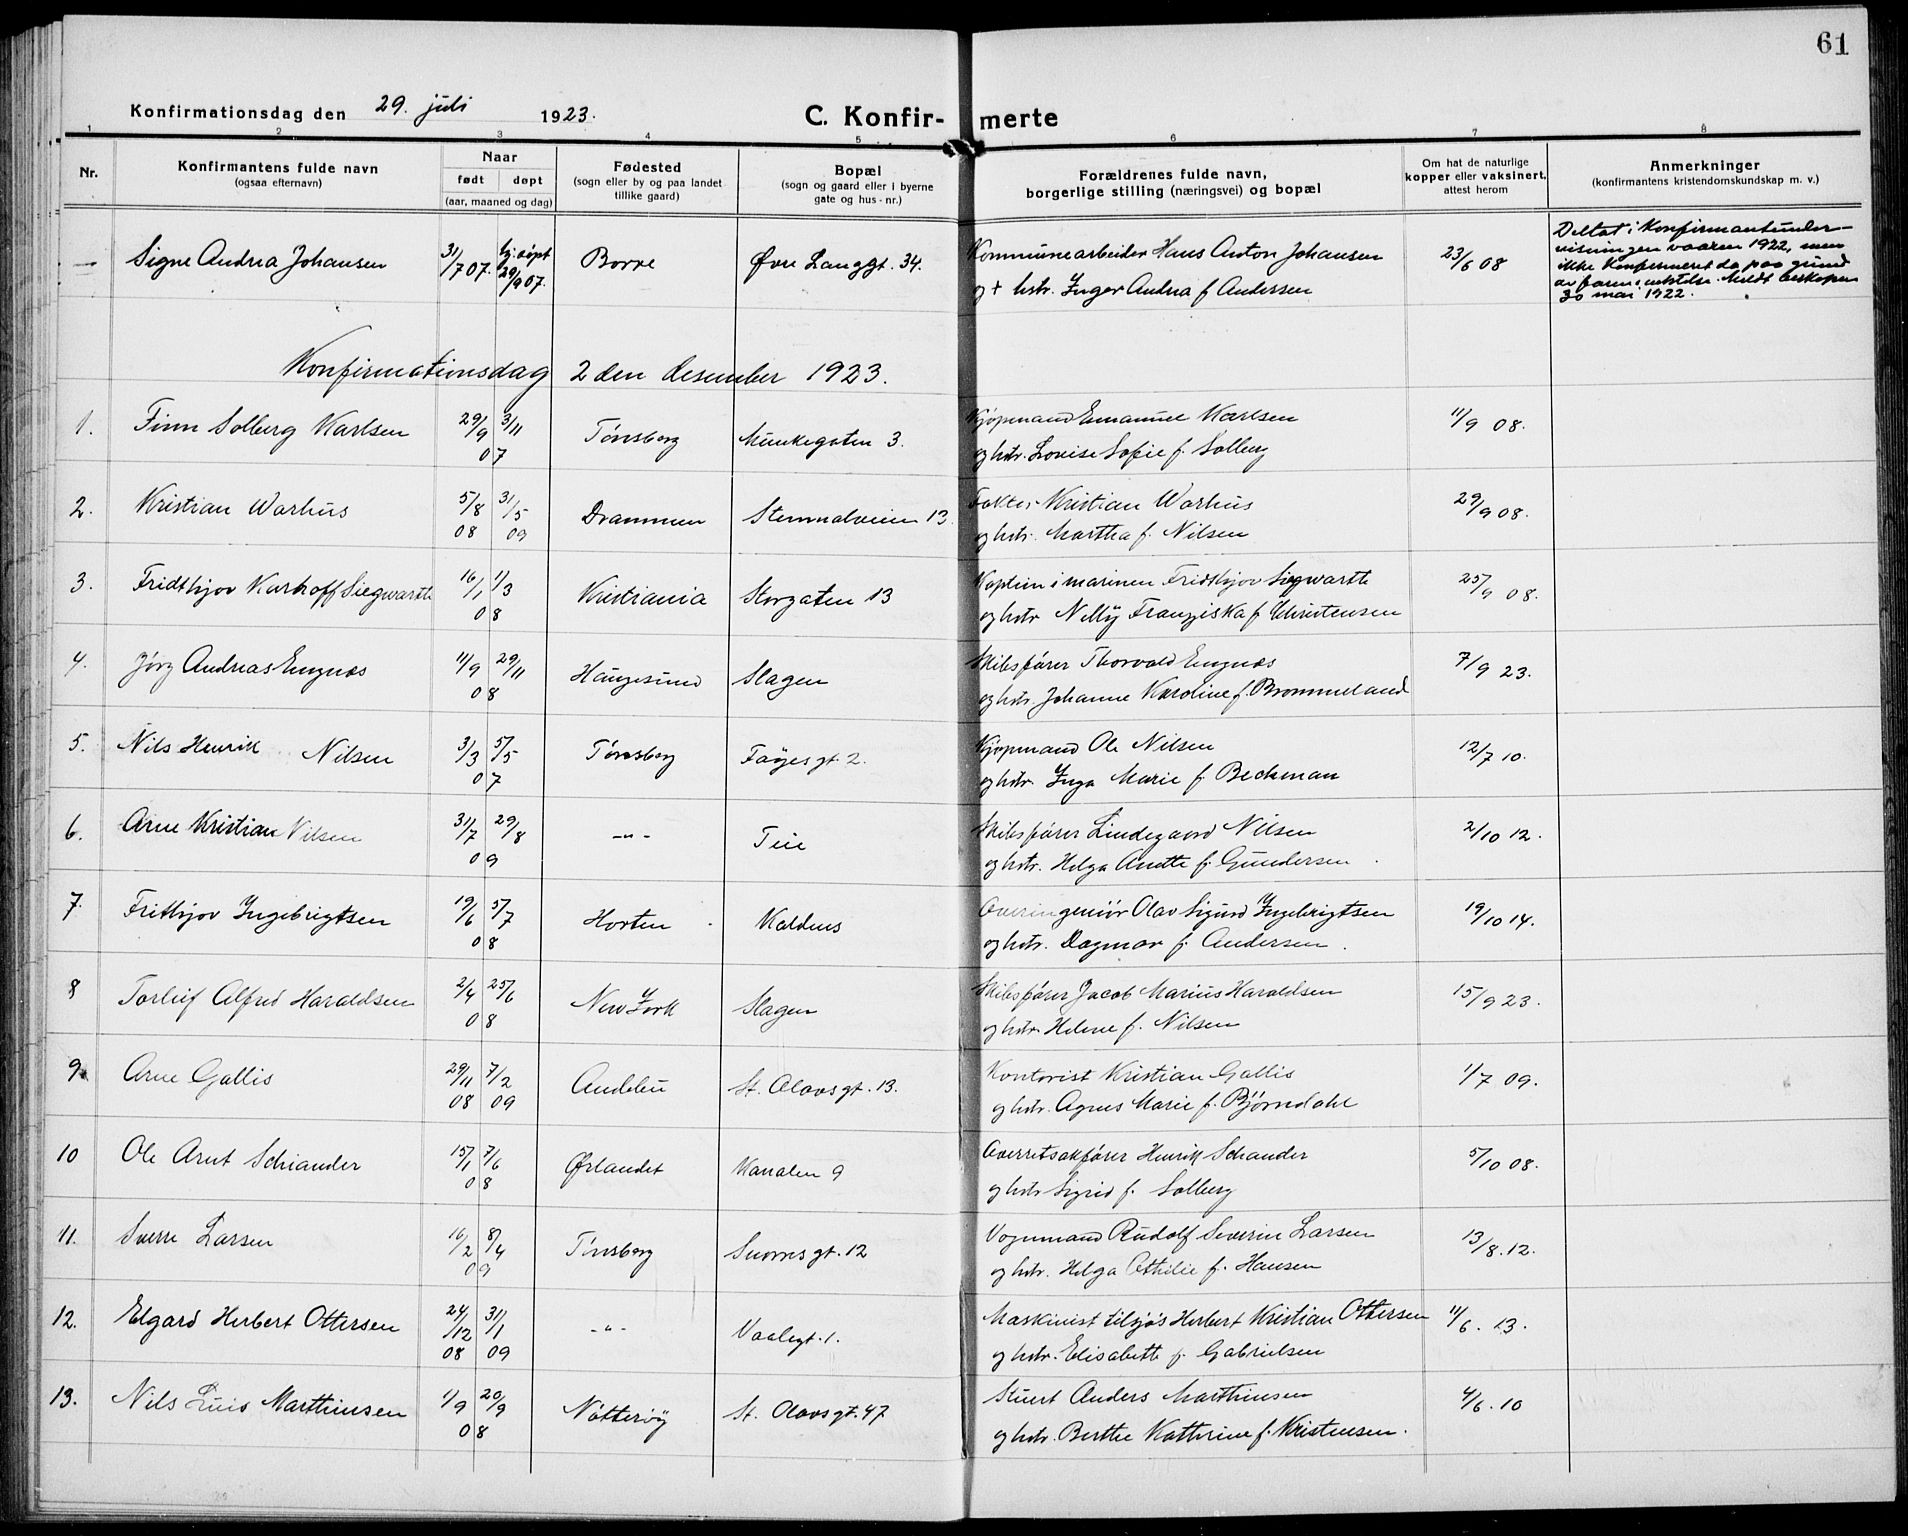 61
Konfirmationsdag den 29. juli 1923.
C. Konfir- merte
1 2 3 4 5 6 7 8
Nr.
Konfirmantens fulde navn
(ogsaa efternavn)
Naar
født døpt
(aar, maaned og dag)
Fødested
(sogn eller by og paa landet
tillike gaard)
Bopæl
(sogn og gaard eller i byerne
gate og hus-nr.)
Forældrenes fulde navn,
borgerlige stilling (næringsvei) og bopæl
Om hat de naturlige
kopper eller vaksinert,
attest herom
Anmerkninger
(konfirmantens kristendomskundskap m. v.)
— Signe Andrea Johansen 31/7 07. hj. døpt 29/9 07. Borre Øvre Langgt. 34. Kommunearbeider Hans Anton Johansen 23/6 08
og + hstr. Inger Andrea f. Andersen
Deltat i Konfirmantunder-
visningen vaaren 1922, men
ikke Konfirmeret da paa grund
av farens Meldt biskopen
30 mai 1922.
Konfirmationsdag 2den desember 1923.
1. Finn Solberg Karlsen 29/9 3/11 07 Tønsberg Munkegaten 3. Kjøpmand Emanuel Karlsen 11/9 08.
og hstr. Lovise Sofie f. Solberg
2. Kristian Warhus 5/8 08 31/5 09 Drammen Stenmalveien 13. Faktor Kristian Warhus 29/9 08.
og hstr. Martha f. Nilsen
3. Fridthjov Karhoff Siegwarth 16/1 1/3 08 Kristiania Storgaten 13 Kaptein i marinen Fridthjov Siegwarth 25/9 08.
og hstr Nelly Franziska f. Christensen
4. Jørg Andreas Emgnæs 11/9 29/11 08 Haugesund Slagen Skibsfører Thorvald Emgnæs 7/9 23.
og hstr. Johanne Karoline f. Brommeland
5. Nils Henrik Nilsen 3/3 5/5 07 Tønsberg Fayesgt 2. Kjøpmand Ole Nilsen 12/7 10.
og hstr. Inga Marie f. Beckman
6. Arne Kristian Nilsen 31/7 29/8 09 -"- Teie Skibsfører Lindegaard Nilsen 2/10 12.
og hstr. Helga Anette f. Gundersen
7. Frithjov Ingebrigtsen 19/6 5/7 08 Horten Kaldnes Overingeniør Olav Sigurd Ingebrigtsen 19/10 14.
og hstr. Dagmar f. Andersen.
8 Torleif Alfred Haraldsen 2/4 25/6 08 New York Slagen Skibsfører Jacob Marius Haraldsen 15/9 23.
og hstr. Helene f. Nilsen
9. Arne Gallis 29/11 08 7/2 09 Andebu St. Olavsgt. 13. Kontorist Kristian Gallis 1/7 09.
og hstr. Agnes Marie f. Bjørndahl
10 Ole Arnt Schiander 15/1 7/6 08 Ørlandet Kanalen 9 Overretsakfører Henrik Schander 5/10 08.
og hstr Sigrid f. Solberg
11. Sverre Larsen 16/2 8/4 09 Tønsberg Snorresgt. 12 Vognmand Rudolf Severin Larsen 13/8. 12.
og hstr. Helga Othilie f. Hansen
12. Elgard Herbert Ottersen 24/12 08 31/1 09 -"- Vaalegt. 1. Maskinist tilsjøs Herbert Kristian Ottersen 11/6. 13.
og hstr. Elisabeth f. Gabrielsen
13. Nils Luis Marthinsen 1/9 20/9 08 Nøtterøy St. Olavsgt. 47 Stuert Anders Marthinsen 4/6. 10
og hstr. Berthe Katherine f. Kristensen.